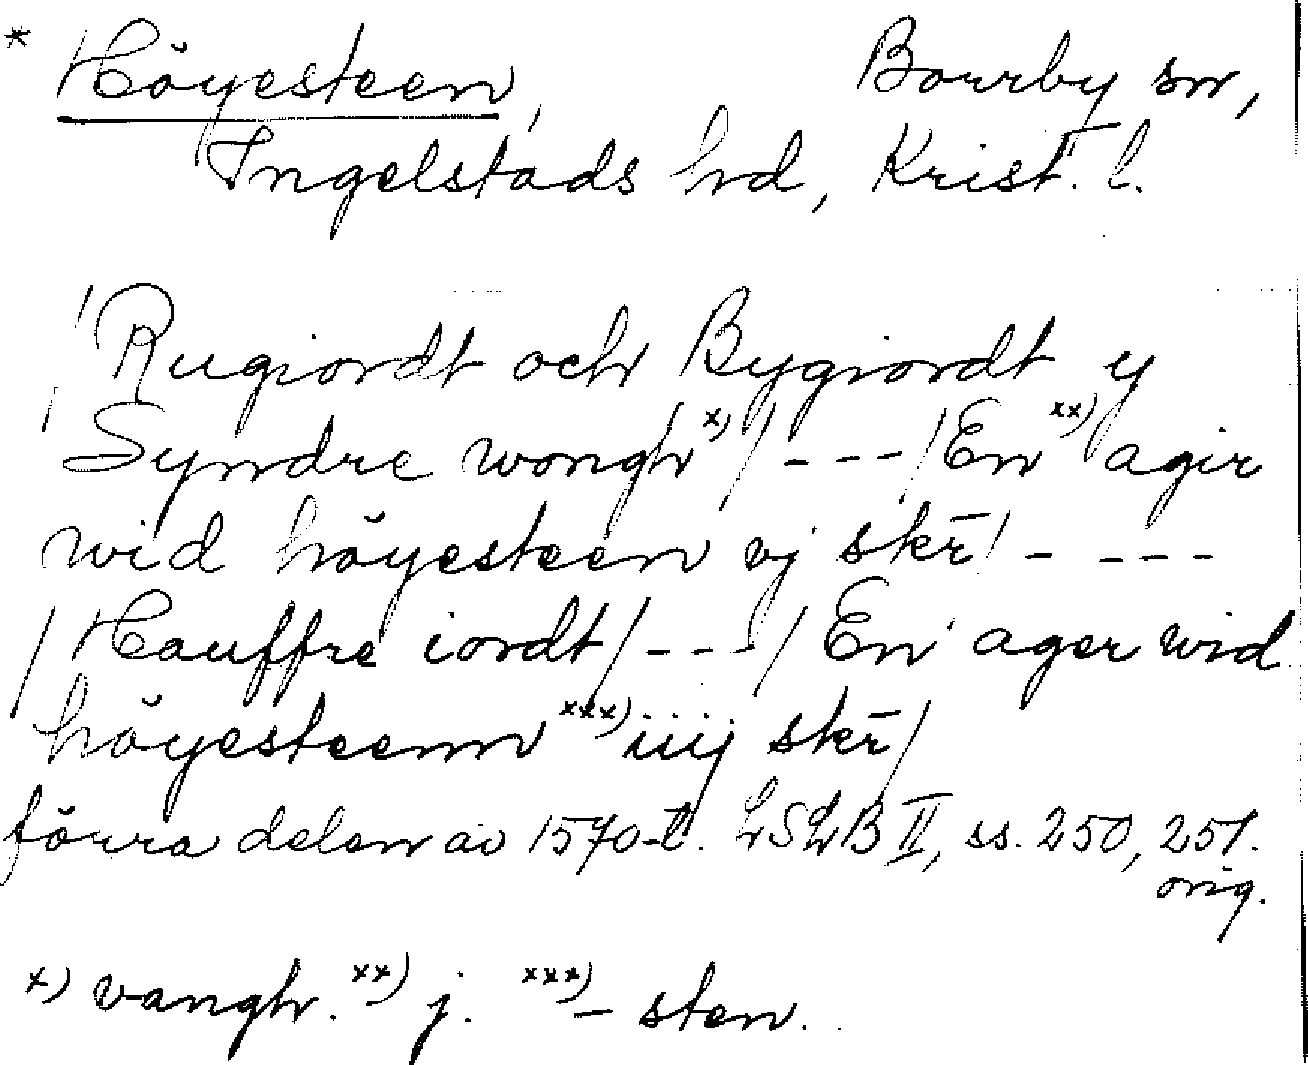 * Höyesteen, Borrby sn,
Ingelstads hd, Krist. l.
/Rugiordt och Bygiordt y
Syndre wongh x)/ - - - /En xx) agir
wid höyesteen vj skr̄/ - - - -
/Hauffre iordt/ - - - / En ager wid
höyesteenn xxx) iiij skr̄/
förra delen av 1570-t. LSLB II, ss. 250, 251.
orig.
x) vangh. xx) j. xxx) - sten.